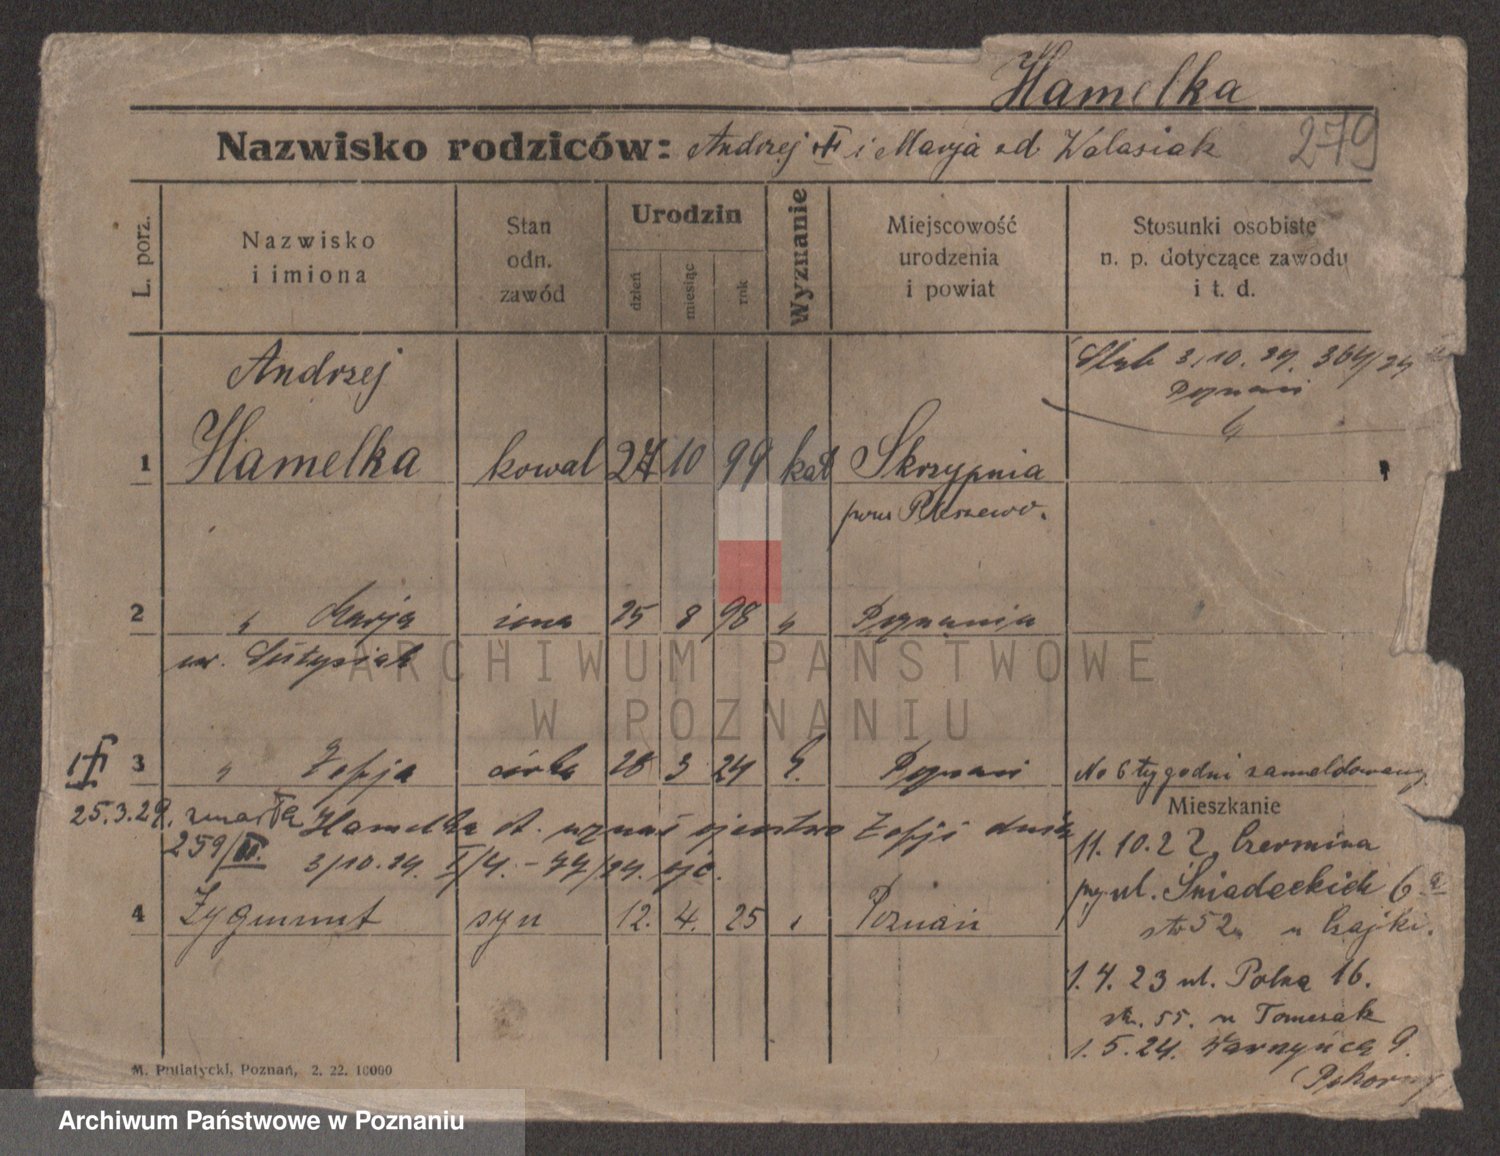 Hamelka
Nazwisko rodziców: Andrzej i Marja od Walasiak
279
L. porz.
Nazwisko
i imiona
Stan
odn.
zawód
Urodzin
dzień
miesiąc
rok
Wyznanie
Miejscowość
urodzenia
i powiat
Stosunki osobiste
n. p. dotyczące zawodu
i t. d.
Ślub 3.10.24. 364/24
Poznań
Andrzej
1 Hamelka kowal 27 10 99 kat Skrzypnia
pow. Pleszewo.
2 " Marja żona 25 8 98 " Poznania
ur.
3 " Zofja córka 28 3 24 Poznań
No 6 tygodni zameldowany
25.3.29. zmarła
259/III.
Hamelka A. uznał ojcostwo Zofji dnia
3/10.24.
4 Zygmunt syn 12. 4. 25 Poznań
Mieszkanie
11.10.22 Czermina
ul. Śniadeckich 6a
u Czajki.
1.4.23 ul. Polna 16.
55. u Tomczak
1.5.24. Wawrzyńca 9.
M. Putiatycki, Poznań, 2. 22. 10000
ARCHIWUM PAŃSTWOWE
W POZNANIU
Archiwum Państwowe w Poznaniu